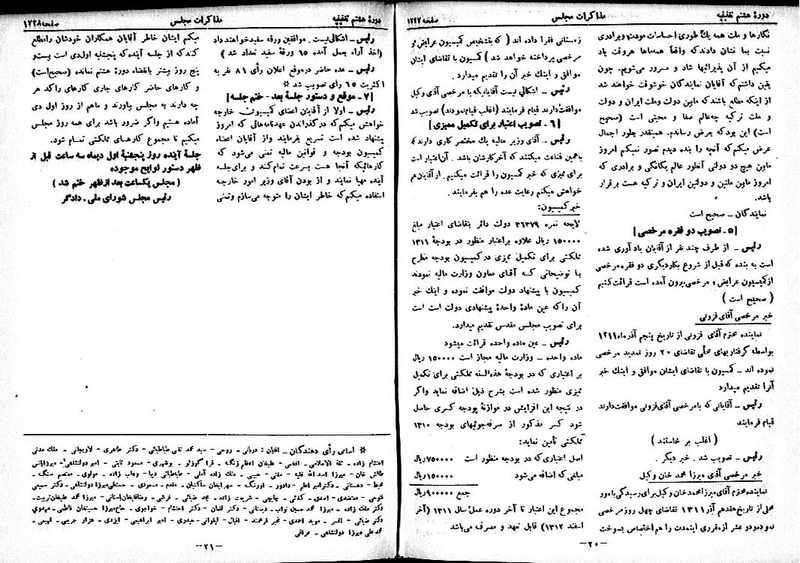 دورهٔ هشتم تقنینیه
مذاکرات مجلس
صفحه ۱۲۲۷
نگارها و ملت همه یک طوری احساسات مودت و برادری
نسبت بما نشان دادند که واقعاً همه‌ماها هر وقت یاد
میکنیم از آن پذیرائیها شاد و مسرور می‌شویم. چون
یقین داشتم که آقایان نمایندگان خوشوقت خواهند شد
از اینکه مطلع باشند که مابین دولت وملت ایران و دولت
و ملت ترکیه چه عالم صفا و محبتی است (صحیح
است) این بود که بعرض رساندم. همینقدر بطور اجمال
عرض میکنم که آنچه را بنده دیدم تصور نمیکنم امروز
مابین هیچ دو دولتی آنطور عالم یگانگی و برادری که
امروز مابین ملتین و دولتین ایران و ترکیه هست برقرار
باشد
نمایندگان ــ صحیح است
[۵ ــ تصویب دو فقره مرخصی]
رئیس ــ از طرف چند نفر از آقایان یاد آوری شده
است به بنده که قبل از شروع بکار دیگری دو فقره مرخصی
از کمیسیون عرایض و مرخصی بیرون آمده است قرائت کنیم
(صحیح است)
خبر مرخصی آقای قزونی
نماینده محترم آقای قزونی از تاریخ پنجم آذر ماه ۱۳۱۱
بواسطه گرفتاریهای محلی تقاضای ۲۰ روز تمدید مرخصی
نموده اند ــ کمیسیون با تقاضای ایشان موافق و اینک خبر
آنرا تقدیم میدارد
رئیس ــ آقایانی که با مرخصی آقای قزونی موافقت دارند
قیام فرمایند
(اغلب بر خاستند)
رئیس ــ تصویب شد. خبر دیگر.
خبر مرخصی آقای میرزا محمد خان وکیل
نماینده محترم آقای میرزا محمد خان وکیل برای رسیدگی بامور
محلی از تاریخ هفدهم آذر ۱۳۱۱ تقاضای چهل روز مرخصی
نموده و دو عشر از مقرری اینمدت را هم اختصاص بسوخت
زمستانی فقرا داده اند (که بتشخیص کمیسیون عرایض و
مرخصی پرداخته خواهد شد) کمیسیون با تقاضای ایشان
موافق و اینک خبر آن را تقدیم میدارد.
رئیس ــ اشکالی نیست آقایانیکه با مرخصی آقای وکیل
موافقت دارند قیام فرمایند (اغلب قیام نمودند) تصویب شد
[۶ ــ تصویب اعتبار برای تکمیل ممیزی]
رئیس ــ آقای وزیر مالیه یک مختصر کاری دارند
باهمین قناعت میکنند که آخر کارشان باشد. آن اعتبار است
برای ممیزی که خبر کمیسیون را قرائت میکنیم. از آقایان هم
خواهش میکنم رعایت عده را هم بفرمایند.
خبر کمیسیون:
لایحه نمره ۳۶۳۷۹ دولت دائر بتقاضای اعتبار مبلغ
۱۵۰۰۰۰ ریال علاوه بر اعتبار منظور در بودجهٔ ۱۳۱۱
مملکتی برای تکمیل ممیزی در کمیسیون بودجه مطرح
با توضیحاتی که آقای معاون وزارت مالیه نمودند
کمیسیون با پیشنهاد دولت موافقت نموده و اینک خبر
آن را که عین مادهٔ واحدهٔ پیشنهادی دولت است است
برای تصویب مجلس مقدس تقدیم میدارد.
رئیس ــ عین ماده واحده قرائت میشود
ماده واحده ــ وزارت مالیه مجاز است ۱۵۰۰۰۰ ریال
بر اعتباری که در بودجهٔ هذه‌السنه مملکتی برای تکمیل
ممیزی منظور شده است بشرح ذیل اضافه نماید و اگر
در نتیجه این افزایش در موازنهٔ بودجه کسری حاصل
شود کسر مذکور از صرفه‌جوئیهای بودجه ۱۳۱۰
مملکتی تأمین نماید:
اصل اعتباری که در بودجه منظور است ۷۵۰۰۰۰ ریال
مبلغی که اضافه می‌شود ۱۵۰۰۰۰ ریال
جمع ۹۰۰۰۰۰ ریال
مجموع این اعتبار تا آخر دوره عمل سال ۱۳۱۱ (آخر
اسفند ۱۳۱۲) قابل تعهد و مصرف می‌باشد
ــ۲۰ــ
دورهٔ هشتم تقنینیه
مذاکرات مجلس
صفحه ۱۲۲۸
رئیس ــ اشکالی نیست. موافقین ورقه سفید خواهند داد
(اخذ آراء بعمل آمده ۶۵ ورقهٔ سفید تعداد شد)
رئیس ــ عده حاضر در موقع اعلان رأی ۸۱ نفر به
اکثریت ۶۵ رأی تصویب شد ※
[۷ ــ موقع و دستور جلسهٔ بعد ــ ختم جلسه]
رئیس ــ اولا از آقایان اعضای کمیسیون خارجه
خواهش میکنم که در گذراندن عهدنامه‌هائی که امروز
پیشنهاد شده است تسریع بفرمایند و از آقایان اعضاء
کمیسیون بودجه و قوانین مالیه تمنی می‌شود که
کارهائیکه آنجا هست بسرعت تمام کنند و برای جلسه
آینده مهیا نمایند و از بودن آقای وزیر امور خارجه
استفاده میکنم که خاطر ایشان را متوجه می‌سازم وتمنی
میکنم ایشان خاطر آقایان همکاران خودشان را مطلع
کنند که از جلسه آینده که پنجشنبه اول دی است و
پنج روز بیشتر بانقضاء دورهٔ هشتم نمانده (صحیح است)
و کارهای حاضر کارهای جاری کارهای راکد هر
چه دارند به مجلس بیاورند و ماهم از روز اول دی
آماده هستیم و اگر ضرور باشد برای همه روز مجلس
میکنیم تا مجموع کارهای مملکتی تمام شود.
جلسهٔ آینده روز پنجشنبهٔ اول دیماه سه ساعت قبل از
ظهر دستور لوایح موجوده
(مجلس یکساعت بعد از ظهر ختم شد)
رئیس مجلس شورای ملی ــ دادگر
※ اسامی رأی دهندگان ــ آقایان: دیوانی ــ روحی ــ سید محمد تقی طباطبائی ــ دکتر طاهری ــ لاریجانی ــ ملک مدنی
ــ۲۱ــ